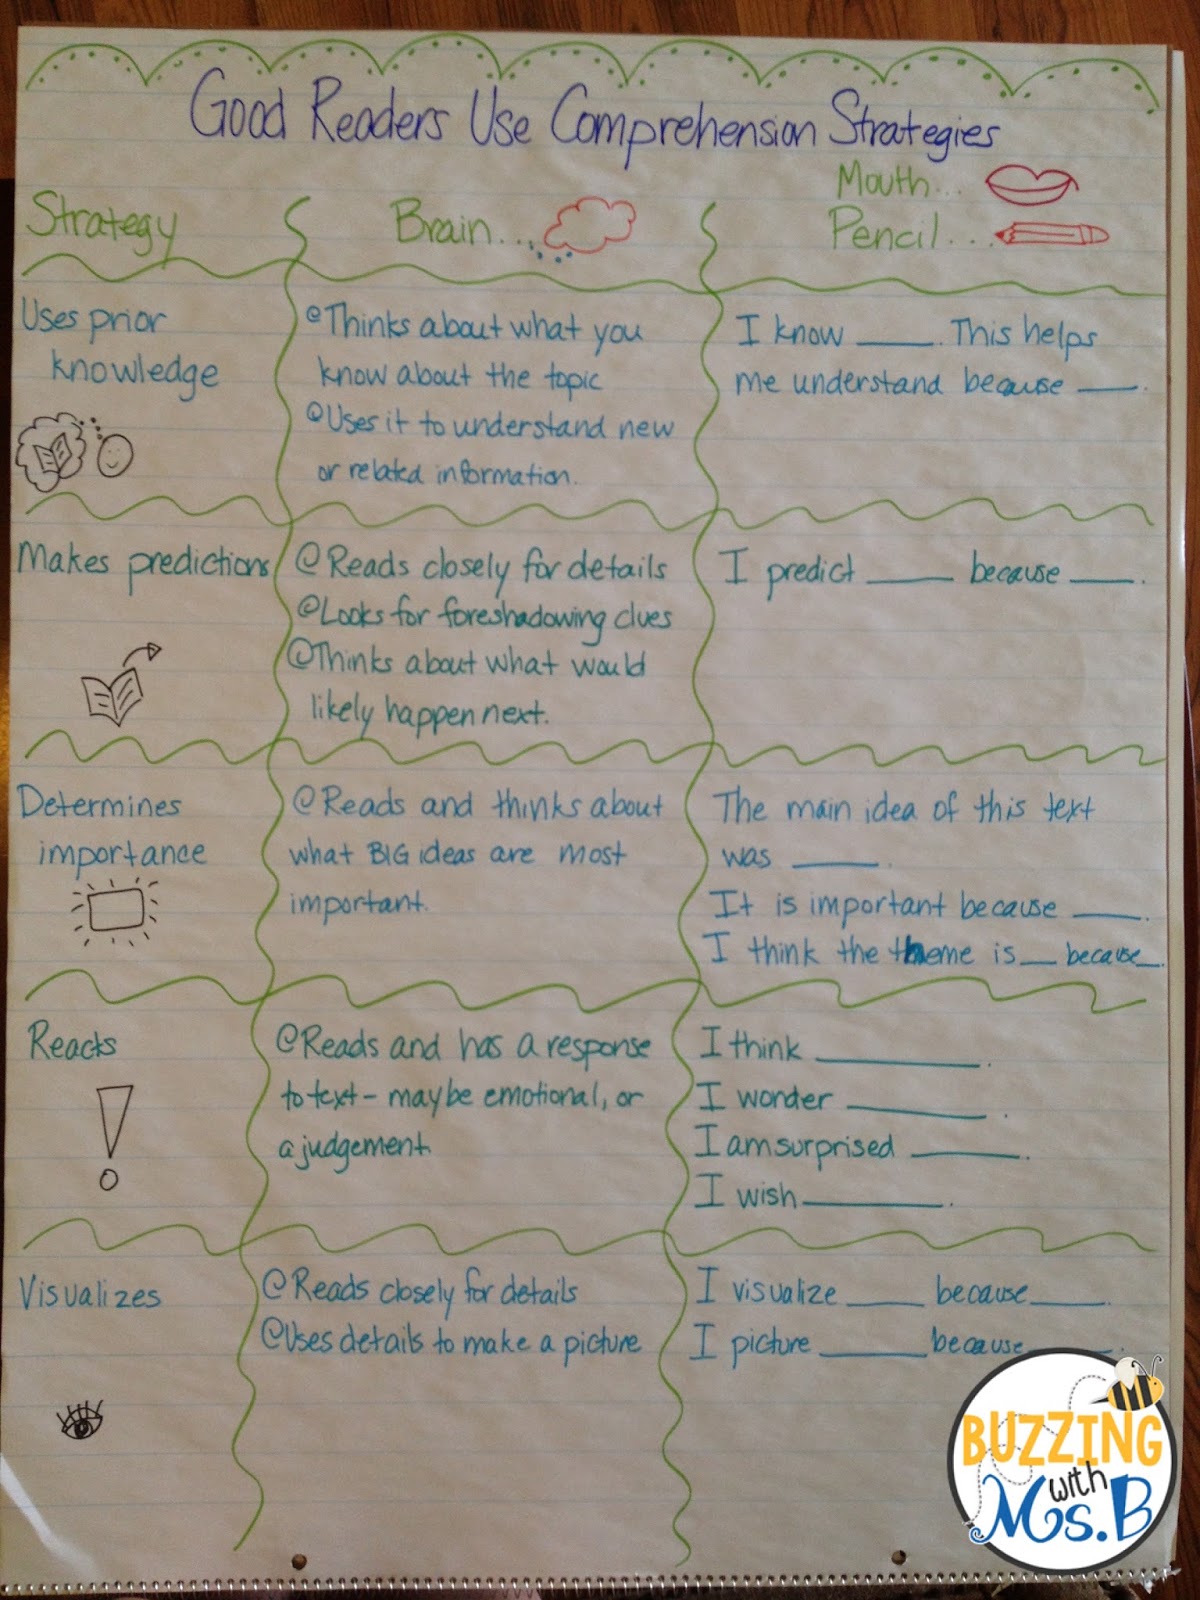 Good Readers Use Comprehension Strategies
Strategy
Brain...
Mouth...
Pencil...
Uses prior
knowledge
Thinks about what you
know about the topic
Uses it to understand new
or related information.
I know ____. This helps
me understand because ___.
Makes predictions
Reads closely for details
Looks for foreshadowing clues
Thinks about what would
likely happen next.
I predict ____ because ___.
Determines
importance
Reads and thinks about
what BIG ideas are most
important.
The main idea of this text
was ____.
It is important because ___.
I think the theme is __ because __.
Reacts
Reads and has a response
to text – maybe emotional, or
a judgement.
I think ________.
I wonder _______.
I am surprised _____.
I wish _______.
Visualizes
Reads closely for details
Uses details to make a picture
I visualize ____ because ____.
I picture _____ because ____.
BUZZING
with
Ms. B